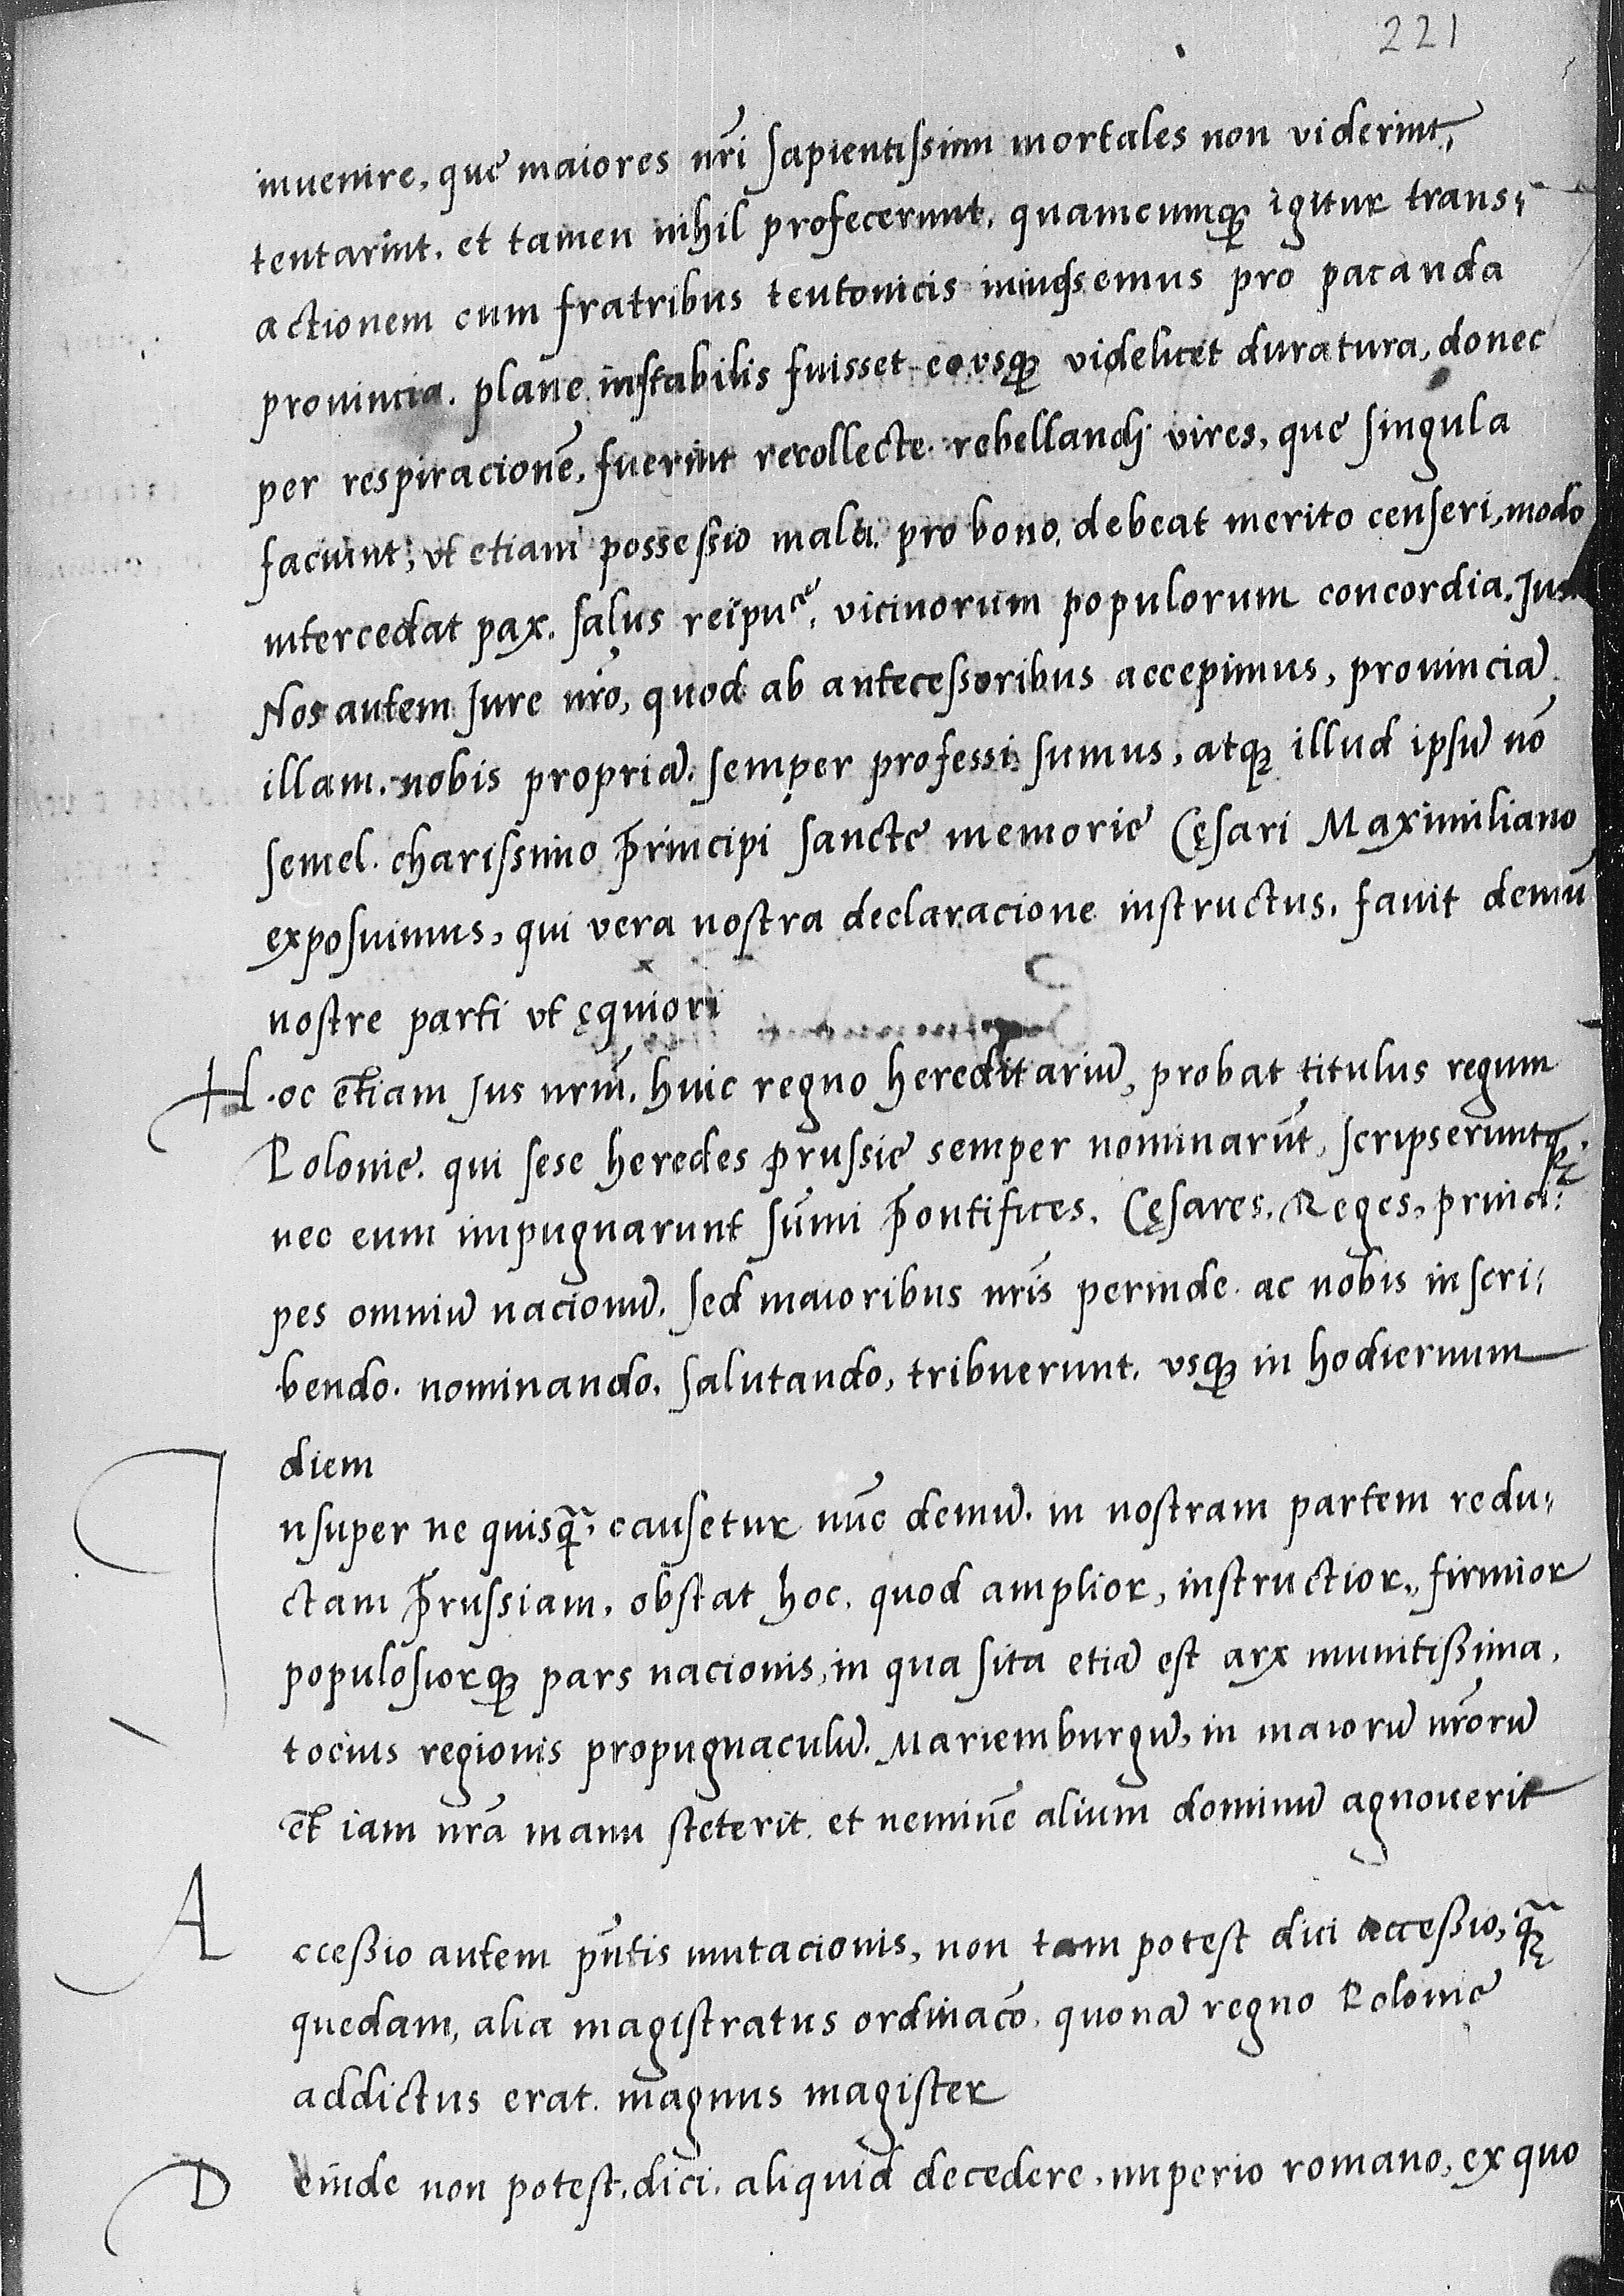 221
inuenire, que maiores nr̃i sapientissimi mortales non viderint,
tentarint. et tamen nihil profecerunt. quamcumqꝫ igitur trans⸗
actionem cum fratribus teutonicis iniuissemus pro pacanda
prouincia. plane instabilis fuisset eo vsqꝫ videlicet duratura, donec
per respiracionẽ, fuerint recollecte rebellandj vires, que singula
faciunt; vt etiam possessio mala pro bono. debeat merito censeri, modo
intercedat pax. salus reipuce, vicinorum populorum concordia. Jus
Nos autem Jure nr̃o, quod ab antecessoribus accepimus, prouinciã
illam. nobis propriã. semper professi sumus, atqꝫ illud ipsũ nõ
semel. charissimo Principi sancte memorie Cęsari Maximiliano
exposuimus, qui vera nostra declaracione instructus. fauit demũ
nostre parti vt ęquiori
H oc etiam Jus nrm̃. huic regno hereditariũ, probat titulus regum
Polonie. qui sese heredes prussie semper nominarũt, scripseruntqꝫ.
nec eum impugnarunt sũmi Pontifices. Cęsares. Reges, princi⸗
pes omniũ nacionũ. sed maioribus nr̃is perinde. ac nobis in scri⸗
bendo. nominando. salutando, tribuerunt. vsqꝫ in hodiernum
diem
I nsuper ne quisqꝫ̃. causetur nũc demũ. in nostram partem redu⸗
ctam Prussiam, obstat hoc. quod amplior, instructior, firmior
populosiorqꝫ pars nacionis, in qua sita etiã est arx munitissima,
tocius regionis propugnaculũ. Mariemburgũ, in maiorũ nr̃orũ
et iam nr̃a manu steterit. et neminẽ alium dominũ agnouerit
A ccessio autem pñtis mutacionis, non tam potest dici accessio, qꝫ̃
quedam, alia magistratus ordinacõ. quonã regno Polonie
addictus erat. magnus magister
D einde non potest. dici. aliquid decedere. imperio romano, ex quo